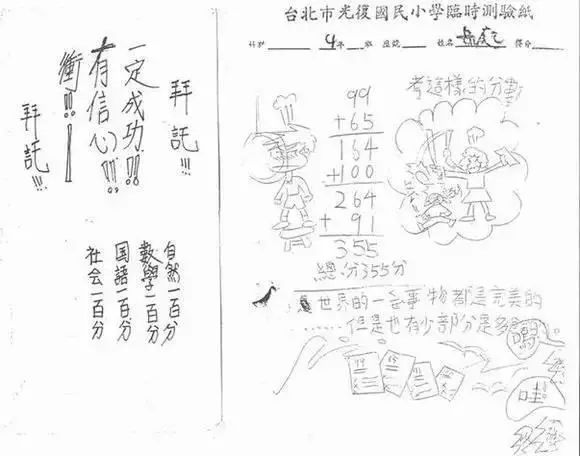 拜託!!!
一定成功!!
有信心!!
衝!!!
拜託!!!
自然一百分
數學一百分
国語一百分
社会一百分
台北市光復國民小學臨時測驗紙
科別 4年 班 座號 姓名 得分
考這樣的分數
99
+65
164
+100
264
+ 91
355
總分355分
世界的一些事物都是完美的
......但是也有少部分是多
嗚
哇